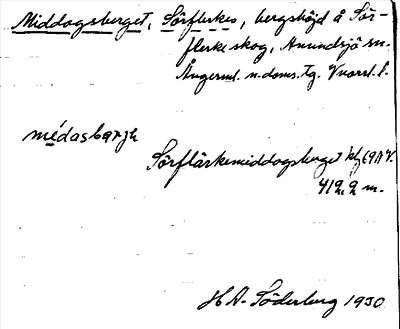 Middagsberget, Sörflerkes, bergshöjd å Sör-
flerke skog, Anundsjö sn.
Ångerml. n. doms. tg. Vnorrl. l.
médasbarjh
Sörflärkemiddagsberget
412,2 m.
H A- Söderberg 1930